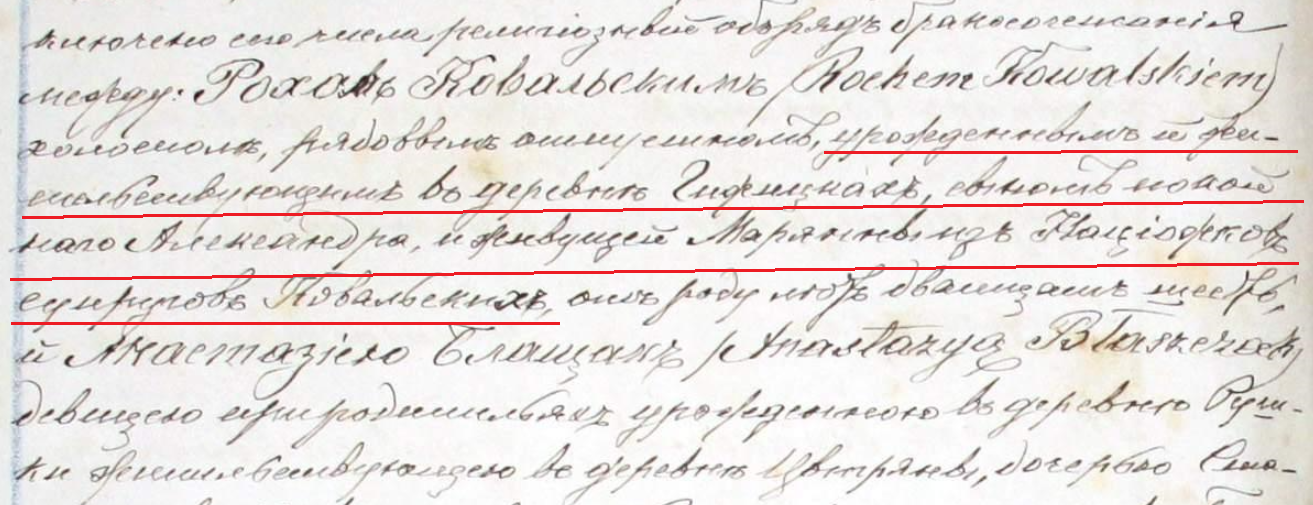 ключено сего числа религіозный обрядъ бракосочетанія
между: Рохомъ Ковальскимъ (Rochem Kowalskiem)
холостомъ, рядовымъ отпускномъ, урожденнымъ и жи-
тельствующимъ въ деревнѣ Гиженкахъ, сыномъ покой
наго Александра, и живущей Маріянны изъ Націофковъ
супруговъ Ковальскихъ, отъ роду лѣтъ двадцать шесть,
и Анастазіею Блащакъ (Anastazyą Błaszczak)
девицею при родителяхъ урожденною въ деревнѣ Руш-
ки жительствующею въ деревнѣ Цвтряны, дочерью Ста-